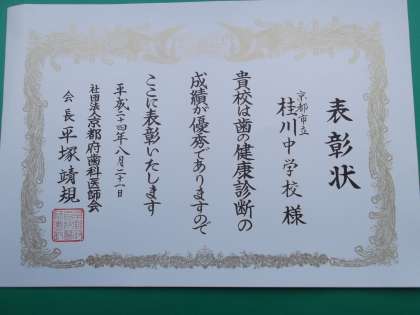 表彰状
京都市立
桂川中学校 様
貴校は歯の健康診断の
成績が優秀でありますので
ここに表彰いたします
平成二十四年八月二十一日
社団法人京都府歯科医師会
会長 平塚靖規